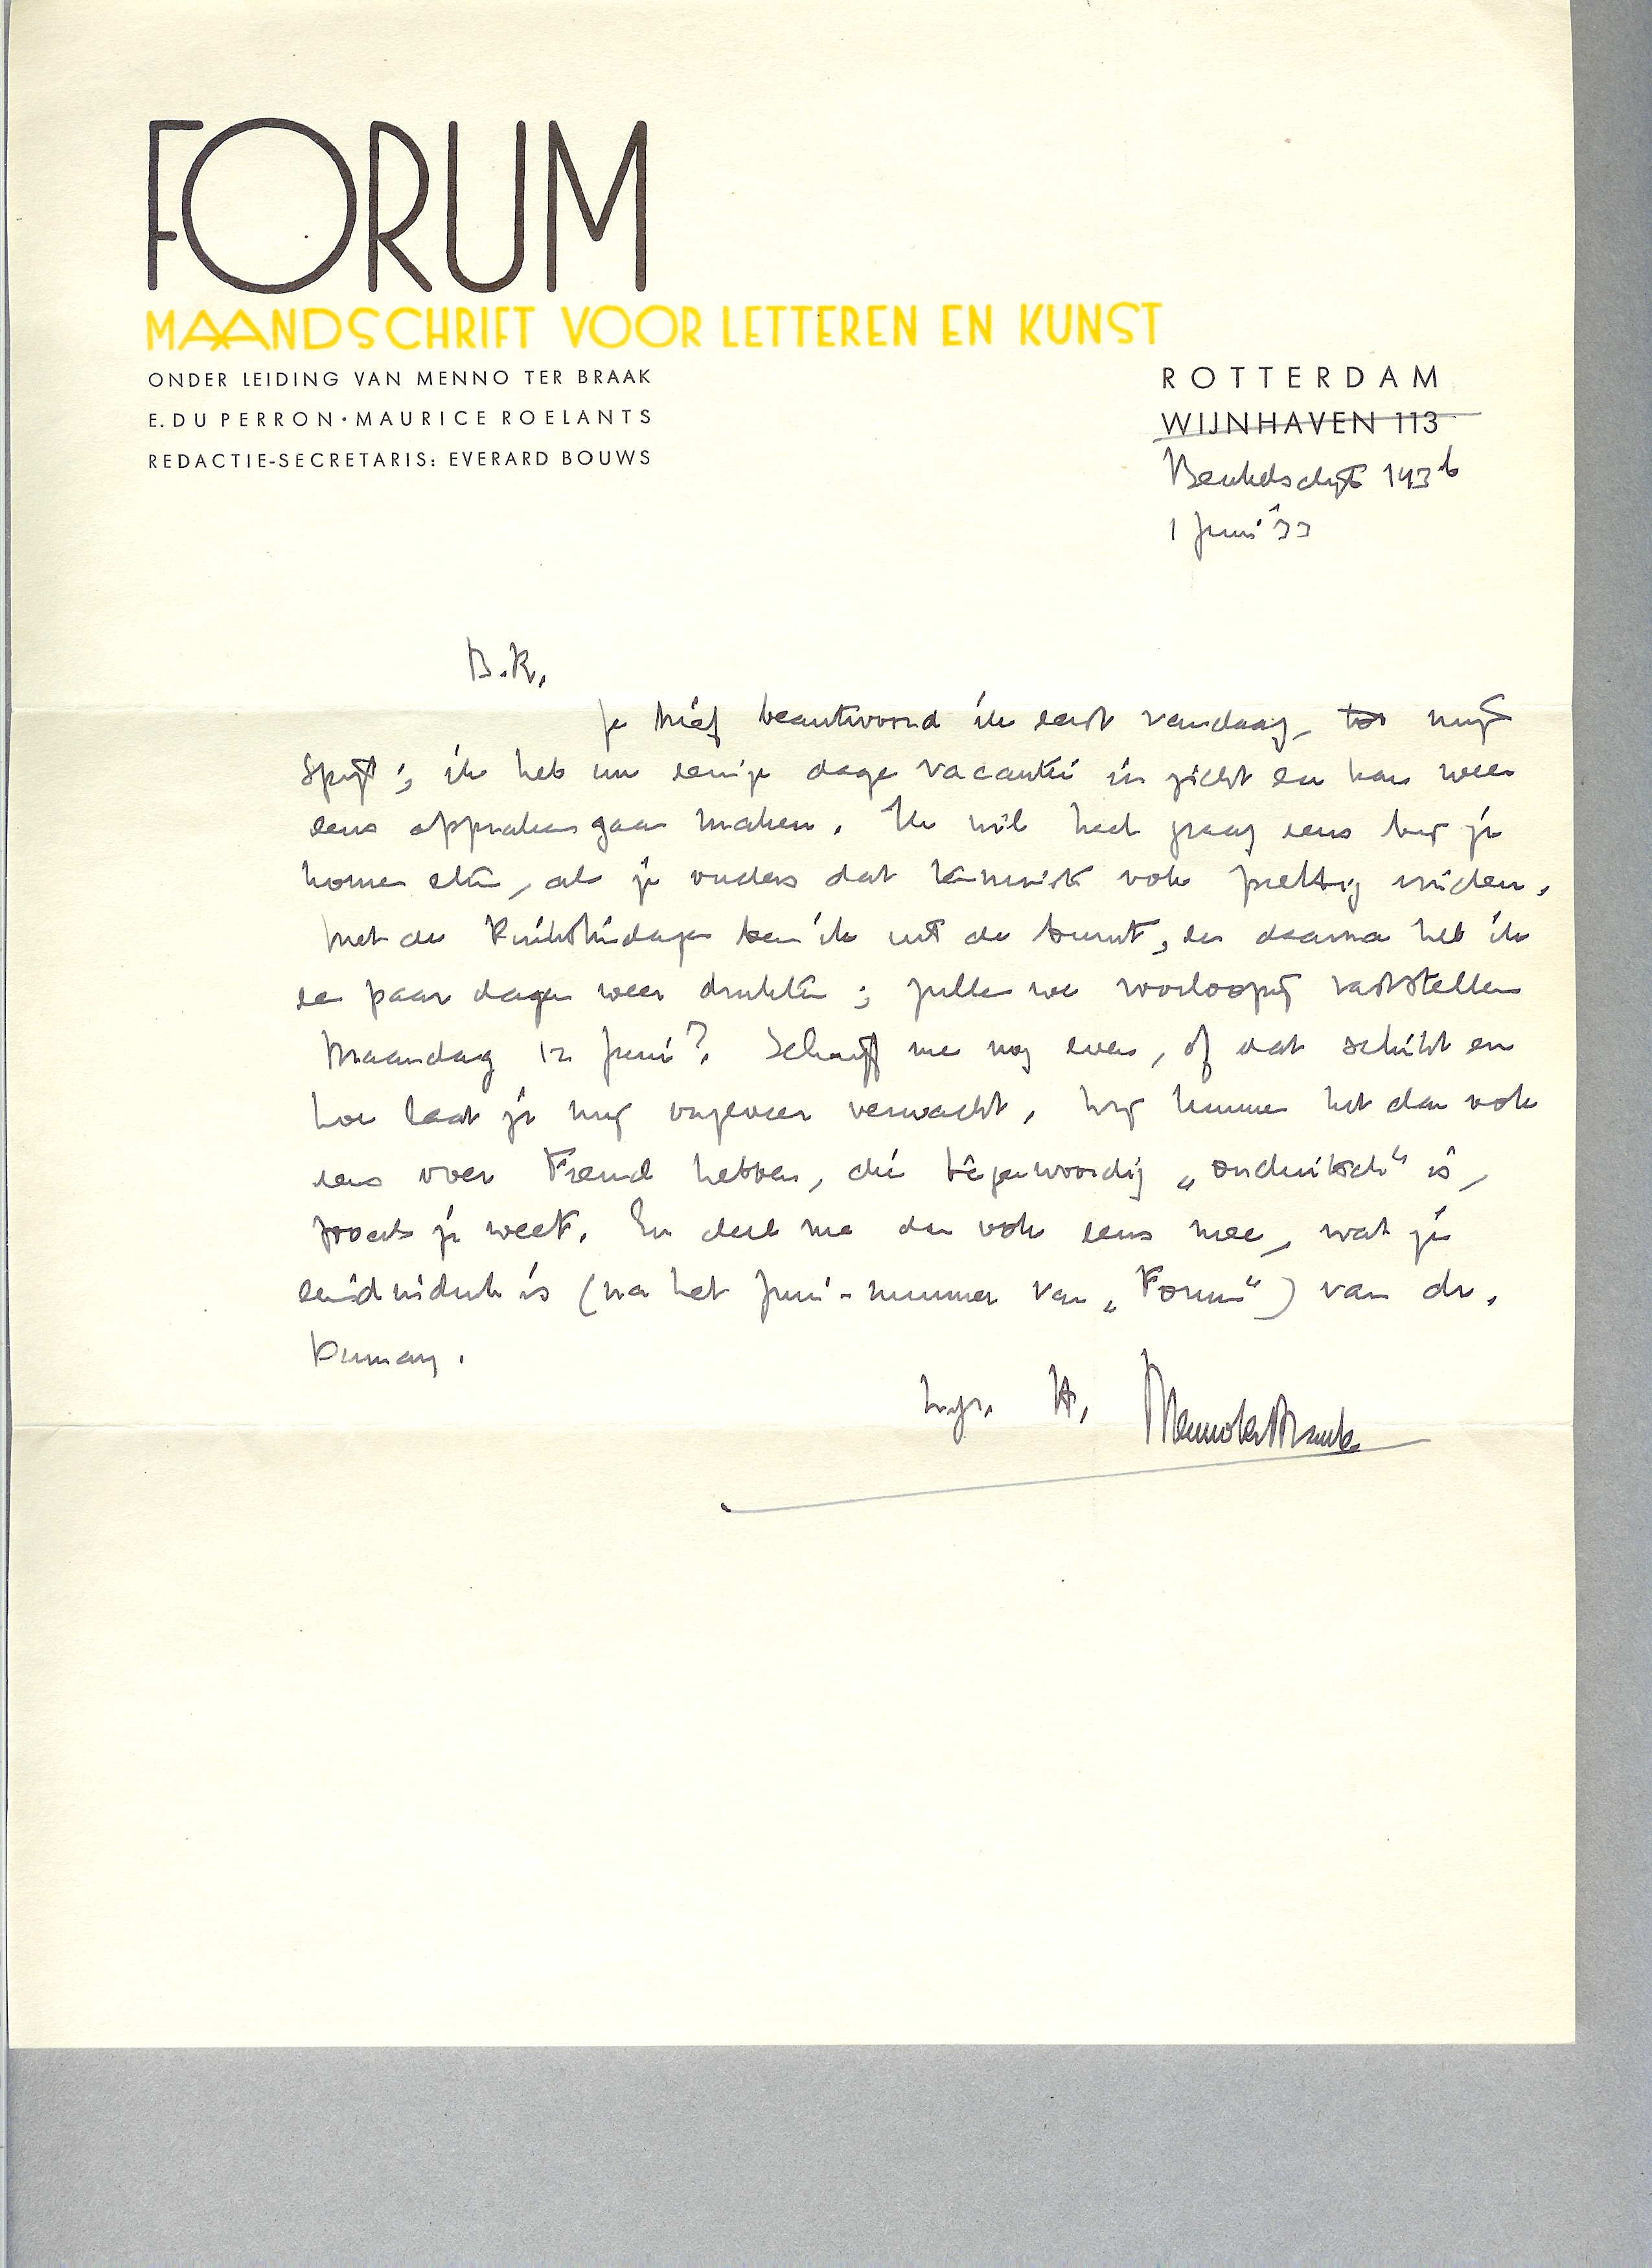 FORUM
MAANDSCHRIFT VOOR LETTEREN EN KUNST
ONDER LEIDING VAN MENNO TER BRAAK
E. DU PERRON · MAURICE ROELANTS
REDACTIE-SECRETARIS: EVERARD BOUWS
ROTTERDAM
WIJNHAVEN 113
Beukelsdijk 143b
1 Juni '33
B.R.,
Je brief beantwoord ik eerst vandaag, tot mijn
spijt; ik heb nu eenige dagen vacantie in zicht en kan weer
eens afspraken gaan maken. Ik wil heel graag eens bij je
komen eten, als je ouders dat tenminste ook prettig vinden.
Met de Pinksterdagen ben ik uit de buurt, en daarna heb ik
een paar dagen weer drukte; zullen we voorloopig vaststellen
Maandag 12 Juni? Schrijf me nog even, of dat schikt en
hoe laat je mij ongeveer verwacht. Wij kunnen het dan ook
eens over Freud hebben, die tegenwoordig „onduitsch" is,
zooals je weet. En deel me dan ook eens mee, wat je
eindindruk is (na het Juni-nummer van „Forum") van dr.
Dumay.
h.gr. tt. Menno ter Braak